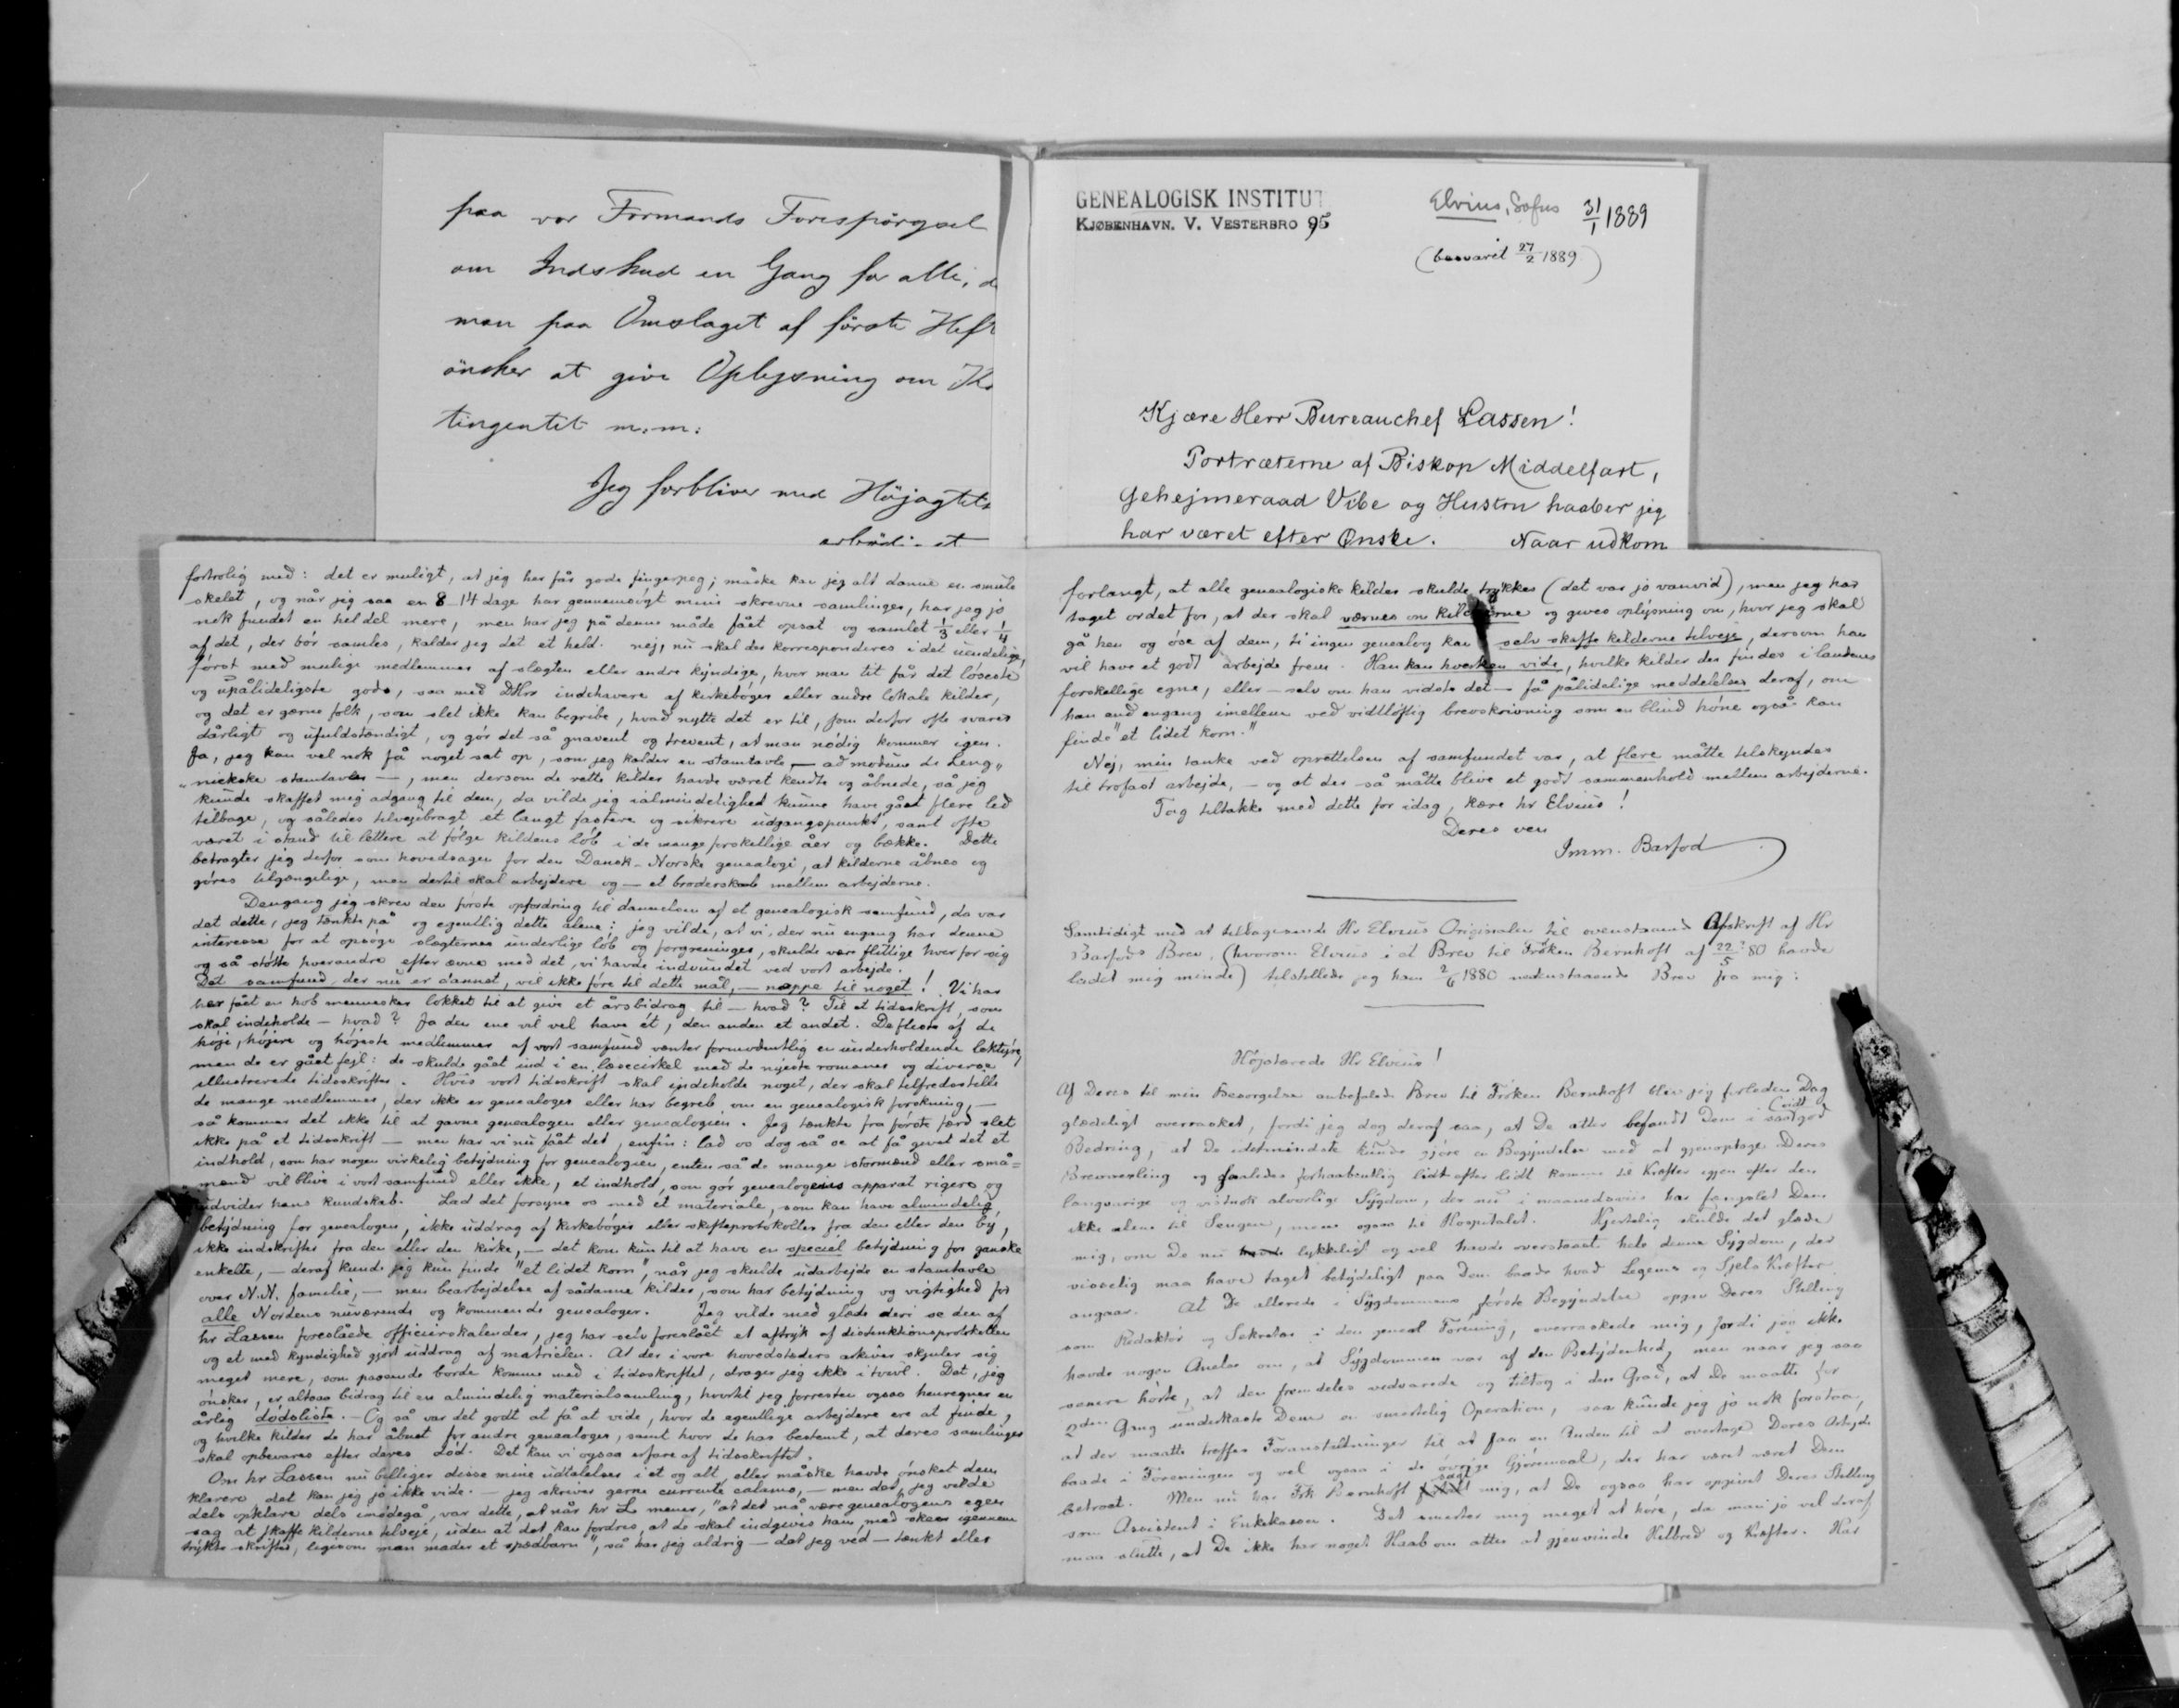 paa vor Formands Forespørgsel
om Indskud en Gang for alle, d
man paa Omslaget af første Heft
ønsker at give Oplysning om Ko
tingentet m:m:
Jeg forbliver med Højagtels
GENEALOGISK INSTITUT
KJØBENHAVN. V. VESTERBRO 95
Elvius, Sofus 31/1 1889
(besvaret 27/2 1889)
Kjære Herr Bureauchef Lassen!
Portræterne af Biskop Middelfart,
Gehejmeraad Vibe og Hustru haaber jeg
har været efter Ønske. Naar udkom
fortrolig med: det er muligt, at jeg her får gode fingerpeg; måske kan jeg alt danne en smule
skelet, og når jeg saa en 8-14 dage har gennemsøgt mine skrevne samlinger, har jeg jo
nok fundet en hel del mere, men har jeg på denne måde fået opsat og samlet 1/3 eller 1/4
af det, der bør samles, kalder jeg det et held. nej, nu skal der korresponderes i det uendelige,
først med mulige medlemmer af slægten eller andre kyndige, hvor man tit får det løseste
og upålideligste gods, saa med DHrr indehavere af kirkebøger eller andre lokale kilder,
og det er gerne folk, som slet ikke kan begribe, hvad nytte det er til, som derfor ofte svarer
dårligt og ufuldstændigt, og gør det så gnavent og trevent, at man nødig kommer igen.
Ja, jeg kan vel nok få noget sat op, som jeg kalder en stamtavle — ad modum de Leng„
„nickske stamtavler —, men dersom de rette kilder havde været kendte og åbnede, så jeg
kunde skaffet mig adgang til dem, da vilde jeg i almindelighed kunne have gået flere led
tilbage, og således tilvejebragt et langt fastere og sikrere udgangspunkt, samt ofte
været i stand til lettere at følge kildens løb i de mange forskellige åer og bække. Dette
betragter jeg derfor som hovedsagen for den Dansk-Norske genealogi, at kilderne åbnes og
gøres tilgængelige, men dertil skal arbejdere og — et broderskab mellem arbejderne.
Dengang jeg skrev den første opfordring til dannelsen af et genealogisk samfund, da var
det dette, jeg tænkte på og egentlig dette alene: jeg vilde, at vi, der nu engang har denne
interesse for at opsøge slægternes underlige løb og forgreninger, skulde være flittige hver for sig
og så støtte hverandre efter evne med det, vi havde indvundet ved vort arbejde.
Det samfund, der nu er dannet, vil ikke føre til dette mål, — næppe til noget! Vi har
her fået en hob mennesker lokket til at give et årsbidrag til — hvad? Til et tidsskrift, som
skal indeholde — hvad? Ja den ene vil vel have ét, den anden et andet. De fleste af de
høje, højere og højeste medlemmer af vort samfund venter formodentlig en underholdende lektyre,
men de er gået fejl: de skulde gået ind i en læsecirkel med de nyeste romaner og diverse
illustrerede tidsskrifter. Hvis vort tidsskrift skal indeholde noget, der skal tilfredsstille
de mange medlemmer, der ikke er genealoger eller har begreb om en genealogisk forskning, —
så kommer det ikke til at gavne genealogen eller genealogien. Jeg tænkte fra første færd slet
ikke på et tidsskrift — men har vi nu fået det, enfin: lad os dog så se at få givet det et
indhold, som har nogen virkelig betydning for genealogien, enten så de mange stormænd eller små=
mænd vil blive i vort samfund eller ikke, et indhold, som gør genealogens apparat rigere og
udvider hans kundskab. Lad det forsyne os med et materiale, som kan have almindelig
betydning for genealogen, ikke uddrag af kirkebøger eller skifteprotokoller fra den eller den by,
ikke indskrifter fra den eller den kirke, — det kom kun til at have en speciel betydning for ganske
enkelte, — deraf kunde jeg kun finde "et lidet korn", når jeg skulde udarbejde en stamtavle
over N.N. familie, — men bearbejdelse af sådanne kilder, som har betydning og vigtighed for
alle Nordens nuværende og kommende genealoger. Jeg vilde med glæde deri se den af
hr Lassen foreslåede officierskalender, jeg har selv foreslået et aftryk af distinktionsprotokollen
og et med kyndighed gjort uddrag af matriklen. At der i vore hovedstæders arkiver skjuler sig
meget mere, som passende burde komme med i tidsskriftet, drager jeg ikke i tvivl. Det, jeg
ønsker, er altsaa bidrag til en almindelig materialsamling, hvortil jeg forresten ogsaa henregner en
årlig dødsliste. — Og så var det godt at få at vide, hvor de egentlige arbejdere ere at finde,
og hvilke kilder de har åbnet for andre genealoger, samt hvor de har bestemt, at deres samlinger
skal opbevares efter deres død. Det kan vi ogsaa erfare af tidsskriftet.
Om hr Lassen nu billiger disse mine udtalelser i et og alt, eller måske havde ønsket dem
klarere det kan jeg jo ikke vide. — jeg skriver gerne currente calamo, — men det, jeg vilde
dels opklare dels imødegå, var dette, at når hr L. mener, "at det må være genealogens egen
sag at skaffe kilderne tilveje, uden at det kan fordres, at de skal indgives ham med skeer igennem
trykte skrifter, ligesom man mader et spædbarn", så har jeg aldrig — det jeg ved — tænkt eller
forlangt, at alle genealogiske kilder skulde trykkes (det var jo vanvid), men jeg har
taget ordet for, at der skal værnes om kilderne og gives oplysning om, hvor jeg skal
gå hen og øse af dem, ti ingen genealog kan selv skaffe kilderne tilveje, dersom han
vil have et godt arbejde frem. Han kan hverken vide, hvilke kilder der findes i landenes
forskellige egne, eller — selv om han vidste det — få pålidelige meddelelser deraf, om
han end engang imellem ved vidtløftig brevskrivning som en blind høne også kan
finde "et lidet korn."
Nej, min tanke ved oprettelsen af samfundet var, at flere måtte tilskyndes
til trofast arbejde, — og at der så måtte blive et godt sammenhold mellem arbejderne.
Tag til takke med dette for idag, kære hr Elvius!
Deres ven
Imm. Barfod
Samtidigt med at tilbagesende Hr Elvius Originalen til ovenstaaende Afskrift af Hr
Barfods Brev, (hvorom Elvius i et Brev til Frøken Bernhoft af 22/5 80 havde
ladet mig minde) tilstillede jeg ham 2/6 1880 nedenstaaende Brev fra mig:
Højstærede Hr Elvius!
Af Deres til min Besørgelse anbefalede Brev til Frøken Bernhoft blev jeg forleden Dag
glædeligt overrasket, fordi jeg dog deraf saa, at De atter befandt Dem i saa god
Bedring, at De idetmindste kunde gjøre en Begyndelse med at gjenoptage Deres
Brevvexling og saaledes forhaabentlig lidt efter lidt komme til Kræfter igjen efter den
langvarige og vistnok alvorlige Sygdom, der nu i maanedsvis har fængslet Dem
ikke alene til Sengen, mens ogsaa til Hospitalet. Hjertelig skulde det glæde
mig, om De nu lykkeligt og vel havde overstaaet hele denne Sygdom, der
visselig maa have taget betydeligt paa Dem baade hvad Legems og Sjels Kræfter
angaar. At De allerede i Sygdommens første Begyndelse opgav Deres Stilling
som Redaktør og Sekretær i den geneal. Forening, overraskede mig, fordi jeg ikke
havde nogen Anelse om, at Sygdommen var af den Betydenhed, men naar jeg saa
senere hørte, at den fremdeles vedvarede og tiltog i den Grad, at De maatte for
2den Gang underkaste Dem en smertelig Operation, saa kunde jeg jo nok forstaa,
at der maatte træffes Foranstaltninger til at faa en Anden til at overtage Deres Arbejde
baade i Foreningen og vel ogsaa i de øvrige Gjøremaal, der har været Dem
betroet. Men nu har Frk Bernhoft sagt mig, at De ogsaa har opgivet Deres Stilling
som Assistent i Enkekassen. Det smerter mig meget at høre, da man jo vel deraf
maa slutte, at De ikke har noget Haab om atter at gjenvinde Helbred og Kræfter. Har